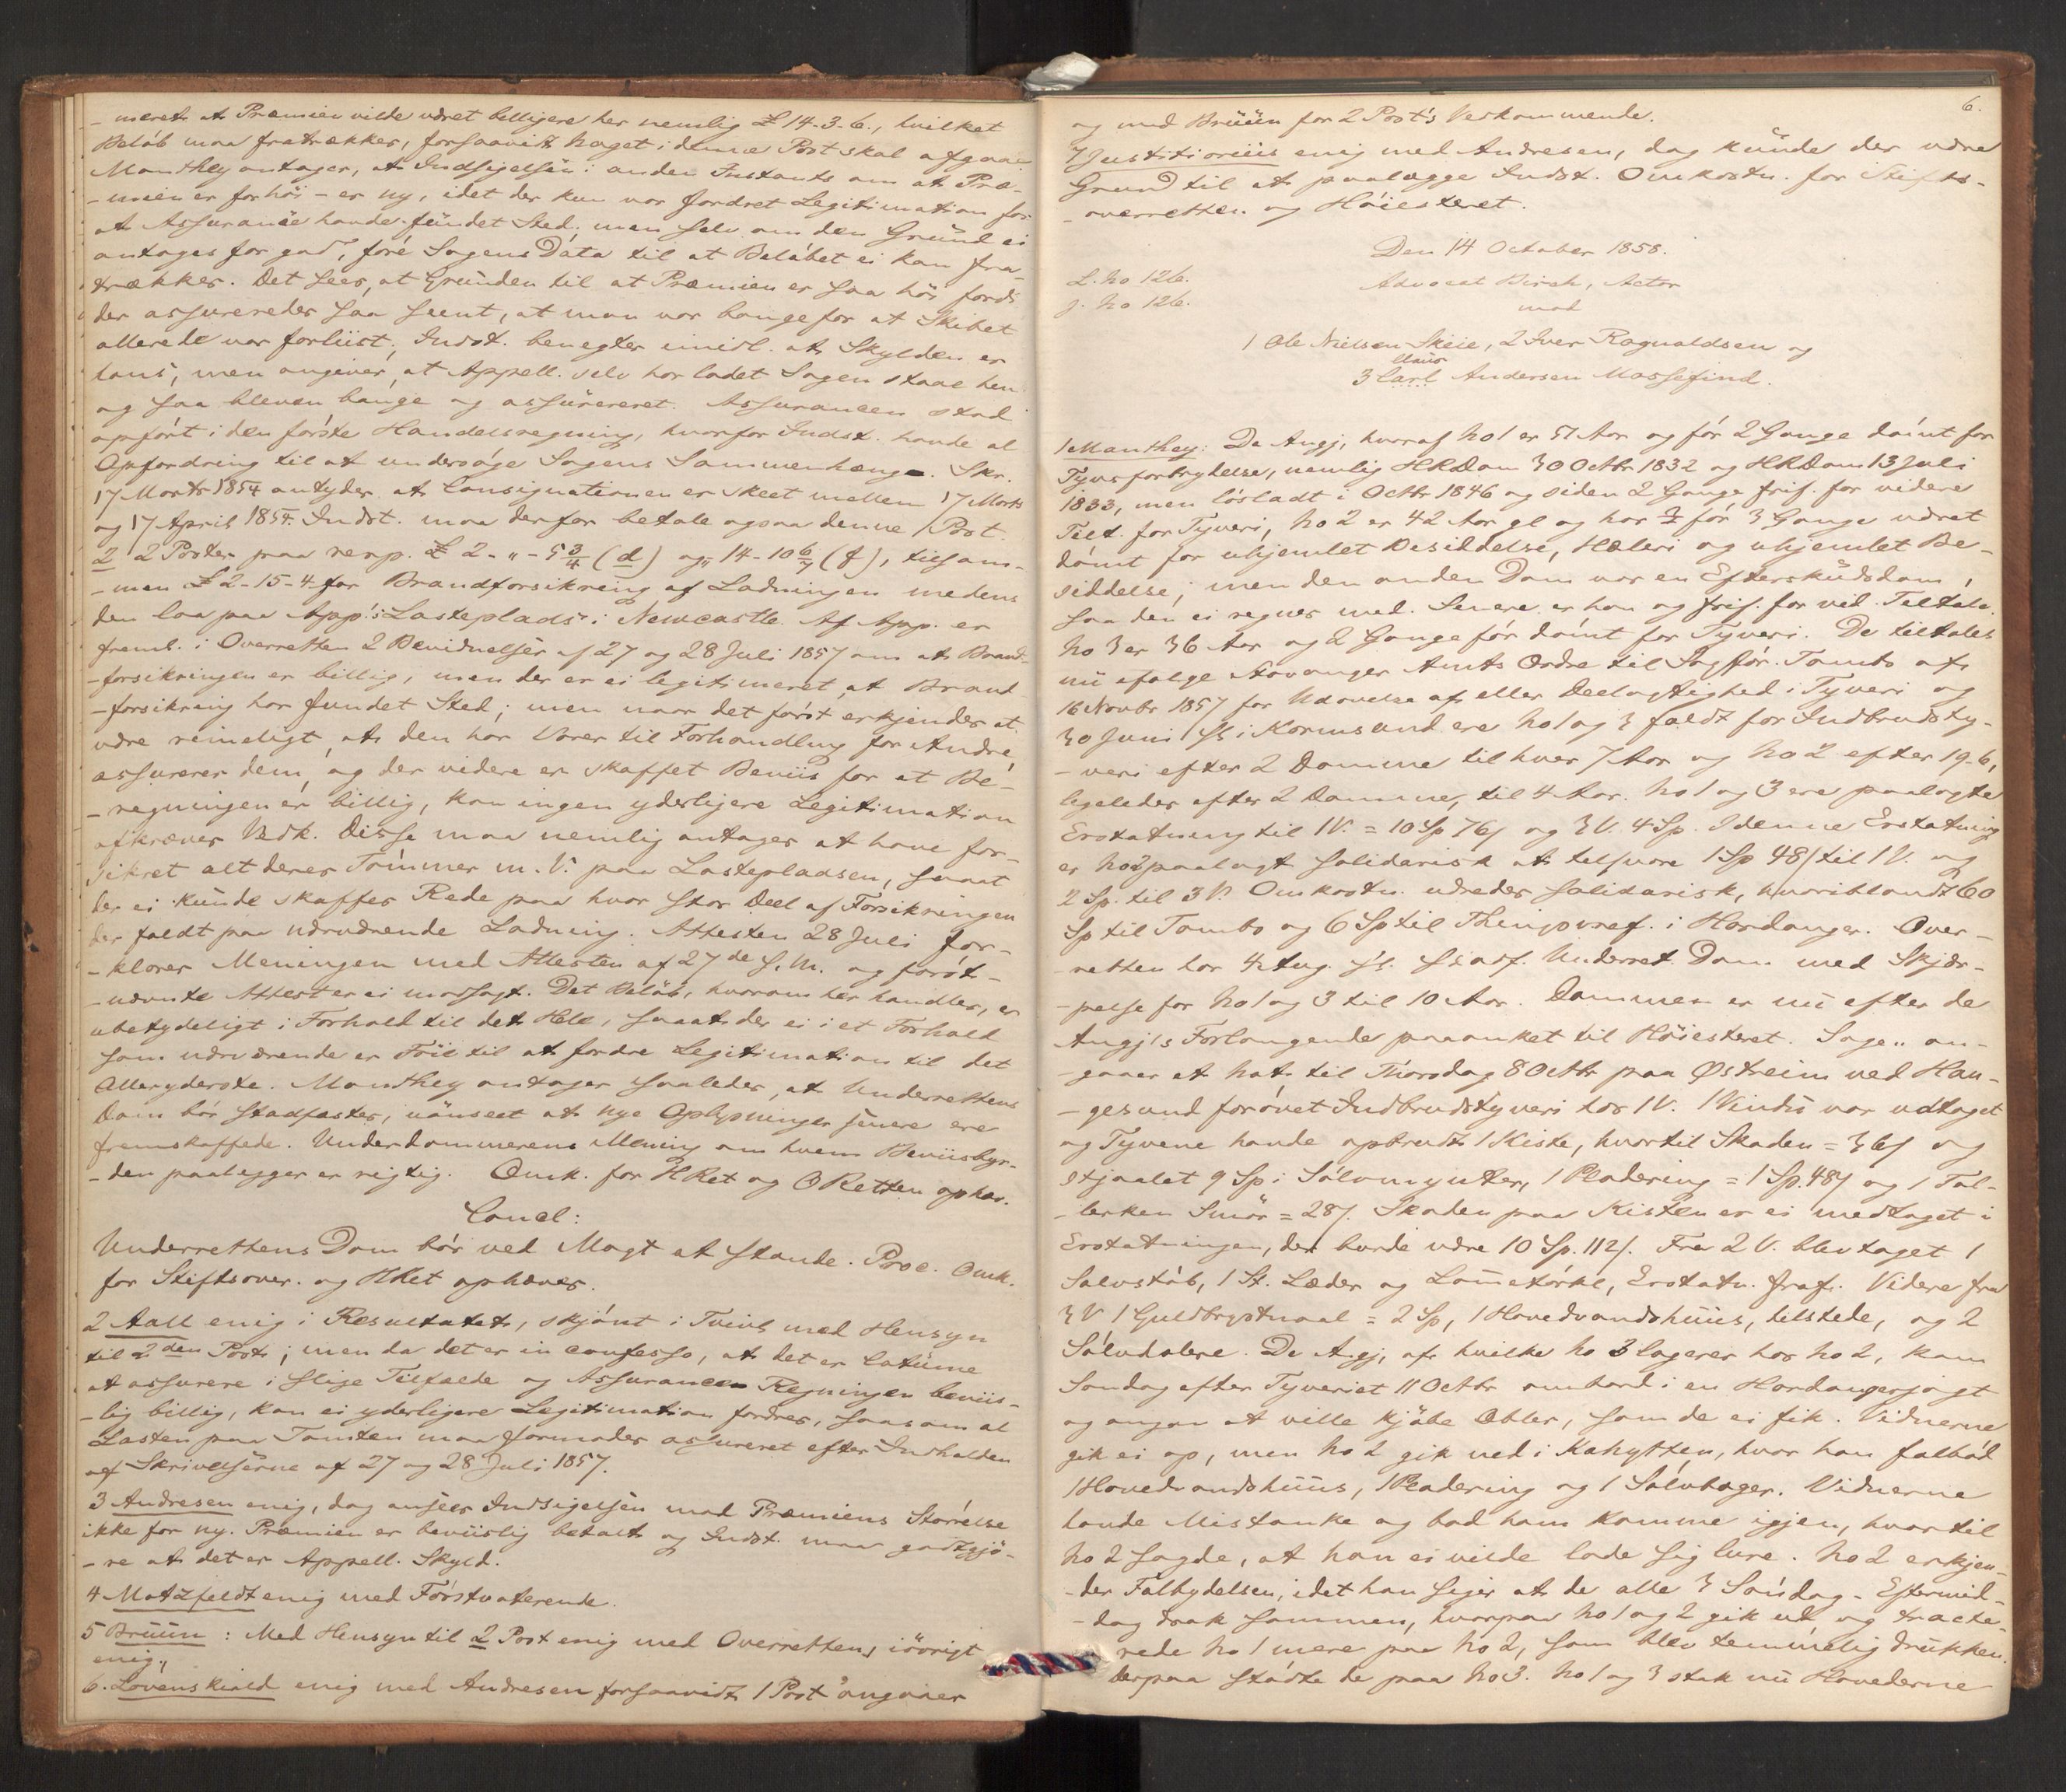 - meret at Præmien vilde været billigere her nemlig £ 14-3-6., hvilket
Beløb maa fratrækkes, forsaavidt Noget i denne Post skal afgaae
Manthey antager, at Indsigelsen i anden Instants om at Præ-
- mien er for høi - er ny, idet der kun var fordret Legitimation for
at Assurance havde fundet Sted; men selv om den Grund ei
antages for god, føre Sagens Data til at Beløbet ei kan fra-
trækkes. Det sees, at Grunden til at Præmien er saa høi fordi
der assureredes saa seent, at man var bange for at Skibet
allerede var forliist; Indst. benegter imidl. at Skylden er
hans, men angiver, at Appell. selv har ladet Sagen staae hen
og saa bleven bange og assureret. Assurancen stod
opført i den første Handelsregning, hvorfor Indst. havde al
Opfordring til at undersøge Sagens Sammenhæng. Skr.
17 Marts 1854 antyder at Consignationen er skeet mellem 17 Marts
og 17 April 1854. Indst. maa derfor betale ogsaa denne Post.
2 2 Poster paa resp. £ 2 - „ - 5 3/4 (d) og „ 14 - 10 6/7 (f), tilsam-
- men £ 2-15-4 for Brandforsikring af Ladningen medens
den laa paa App.'s Lasteplads i Newcastle. Af App. er
freml. i Overretten 2 Bevidnelser af 27 og 28 Juli 1857 om at Brand-
- forsikringen er billig, men der er ei legitimeret at Brand
- forsikring har fundet Sted; men naar det først erkjendes at
være rimeligt, at den har Varer til Forhandling for Andre,
assurerer dem, og der videre er skaffet Beviis for at Be-
- regningen er billig, kan ingen yderligere Legitimation
afkræves Vedk. Disse maa nemlig antages at have for-
sikret alt deres Tømmer m. V. paa Lastepladsen, saaat
der ei kunde skaffes Rede paa hvor stor Deel af Forsikringen
der faldt paa nærværende Ladning. Attesten 28 Juli for-
- klarer Meningen med Attesten af 27de s. M. og først-
- nævnte Attest er ei modsagt. Det Beløb, hvorom her handles, er
ubetydeligt i Forhold til det Hele, saaat der ei i et Forhold
som nærværende er Föie til at fordre Legitimation til det
Alleryderste. Manthey antager saaledes, at Underrettens
Dom bør stadfæstes, uanseet at nye Oplysninger senere ere
fremskaffede. Underdommerens Mening om hvem Beviisbyr-
- den paalegger er rigtig. Omk. for HRet og ORetten ophæv.
Concl:
Underrettens Dom bør ved Magt at stande. Proc. Omk.
for Stiftsover. og HRet ophæves.
2 Aall enig i Resultatet, skjønt i Tvivl med Hensyn
til 2den Post; men da det er in confesso, at det er Coutume
at assurere i slige Tilfælde og Assurancen Regningen beviis-
- lig billig, kan ei yderligere Legitimation fordres, saasom al
Lasten paa Tomten maa formodes assureret efter Indholden
af Skrivelserne af 27 og 28 Juli 1857.
3 Andresen enig, dog ansees Indsigelsen mod Præmiens Størrelse
ikke for ny. Præmien er beviislig betalt og Indst. maa godtgjö-
- re at det er Appell. Skyld.
4 Motzfeldt enig med Förstvoterende.
5 Bruun: Med Hensyn til 2 Post enig med Overretten, iövrigt
enig„
6. Lövenskiold enig med Andresen forsaavidt 1 Post angaaer
6.
og med Bruun for 2 Post's Vedkommende.
7 Justitiarius enig med Andresen, dog kunde der være
Grund til at paalægge Indst. Omkostn. for Stifts-
- overretten og Høiesteret.
Den 14 October 1858.
L. No 126.
J. No 126.
Advocat Birch, Actor
mod
1 Ole Nielsen Skeie, 2 Iver Ragnvaldsen og
Claus
3 Carl Andersen Mossefind.
1 Manthey: De Angj, hvoraf No 1 er 51 Aar og før 2 Gange dömt for
Tyvsforbrydelse, nemlig HRDom 30 Octbr 1832 og HRDom 13 Juli
1833, men løsladt i Octbr 1846 og siden 2 Gange frif. for videre
Tilt. for Tyveri, No 2 er 42 Aar gl og har før 3 Gange været
dömt for uhjemlet Besiddelse, Hæleri og uhjemlet Be-
siddelse; men den anden Dom var en Efterskudsdom,
saa den ei regnes med. Senere er han og frif. for vid. Tiltale.
No 3 er 36 Aar og 2 Gange før dömt for Tyveri. De tiltales
nu efølge Stavanger Amts Ordre til Sagför. Tambs af
16 Novbr 1857 for Udøvelse af eller Deelagtighed i Tyveri og
30 Juni s i Karmsund ere No 1 og 3 fældt for Indbrudsty-
- veri efter 2 Domme til hver 7 Aar og No 2 efter 19-6,
ligeledes efter 2 Domme, til 4 Aar. No 1 og 3 ere paalagte
Erstatning til 1 V. = 10 Sp 76 s og 3 V. 4 Sp. I denne Erstatning
er No 2 paalagt solidarisk at tilsvare 1 Sp 48 s til 1 V. og
2 Sp. til 3 V. Omkostn. udredes solidarisk, hvoriblandt 60
Sp til Tambs og 6 Sp til Thingsvref. i Hardanger. Over-
- retten har 4 Aug. s. Underret Dom med Skjær-
- pelse for No 1 og 3 til 10 Aar. Dommen er nu efter de
Angj's Forlangende paaanket til Høiesteret. Sagen an-
- gaaer at Nat til Thorsdag 8 Octbr paa Østreim ved Hau-
- gesund forøvet Indbrudstyveri hos 1 V. 1 Vindu var udtaget
og Tyvene havde opbrudt 1 Kiste, hvortil Skaden = 36 s og
stjaalet 9 Sp i Sölvmynter, 1 Pladering = 1 Sp. 48 s og 1 Tal-
- lerken Smör = 28 s. Skaden paa Kisten er ei medtaget i
Erstatningen, der burde være 10 Sp. 112 s. Fra 2 V. blev taget 1
Sølvstøb, 1 St. Læder og Lommetørkl, Erstatn. fraf. Videre fra
3 V 1 Guldbrystnaal = 2 Sp, 1 Hovedvandshuus, tilstede, og 2
Sølvdalere. De Angj, af hvilke No 3 logerer hos No 2, kom
Søndag efter Tyveriet 11 Octbr ombord i en Hardangerjagt
og angav at ville kjøbe Æbler, som de ei fik. Vidnerne
gik ei op, men No 2 gik ned i Kahytten, hvor han falbød
1 Hovedvandshuus, 1 Pladering og 1 Sølvbæger. Vidnerne
havde Mistanke og bad ham komme igjen, hvortil
No 2 sagde, at han ei vilde lade sig lure. No 2 erkjen-
- der Falbydelsen, idet han siger at de alle 3 Søndag-Eftermid-
- dag drak sammen, hvorpaa No 1 og 2 gik ud og tracte-
rede No 1 mere paa No 2, som blev temmelig drukken.
Derpaa stødte de paa No 3. No 1 og 3 stak nu Hovederne